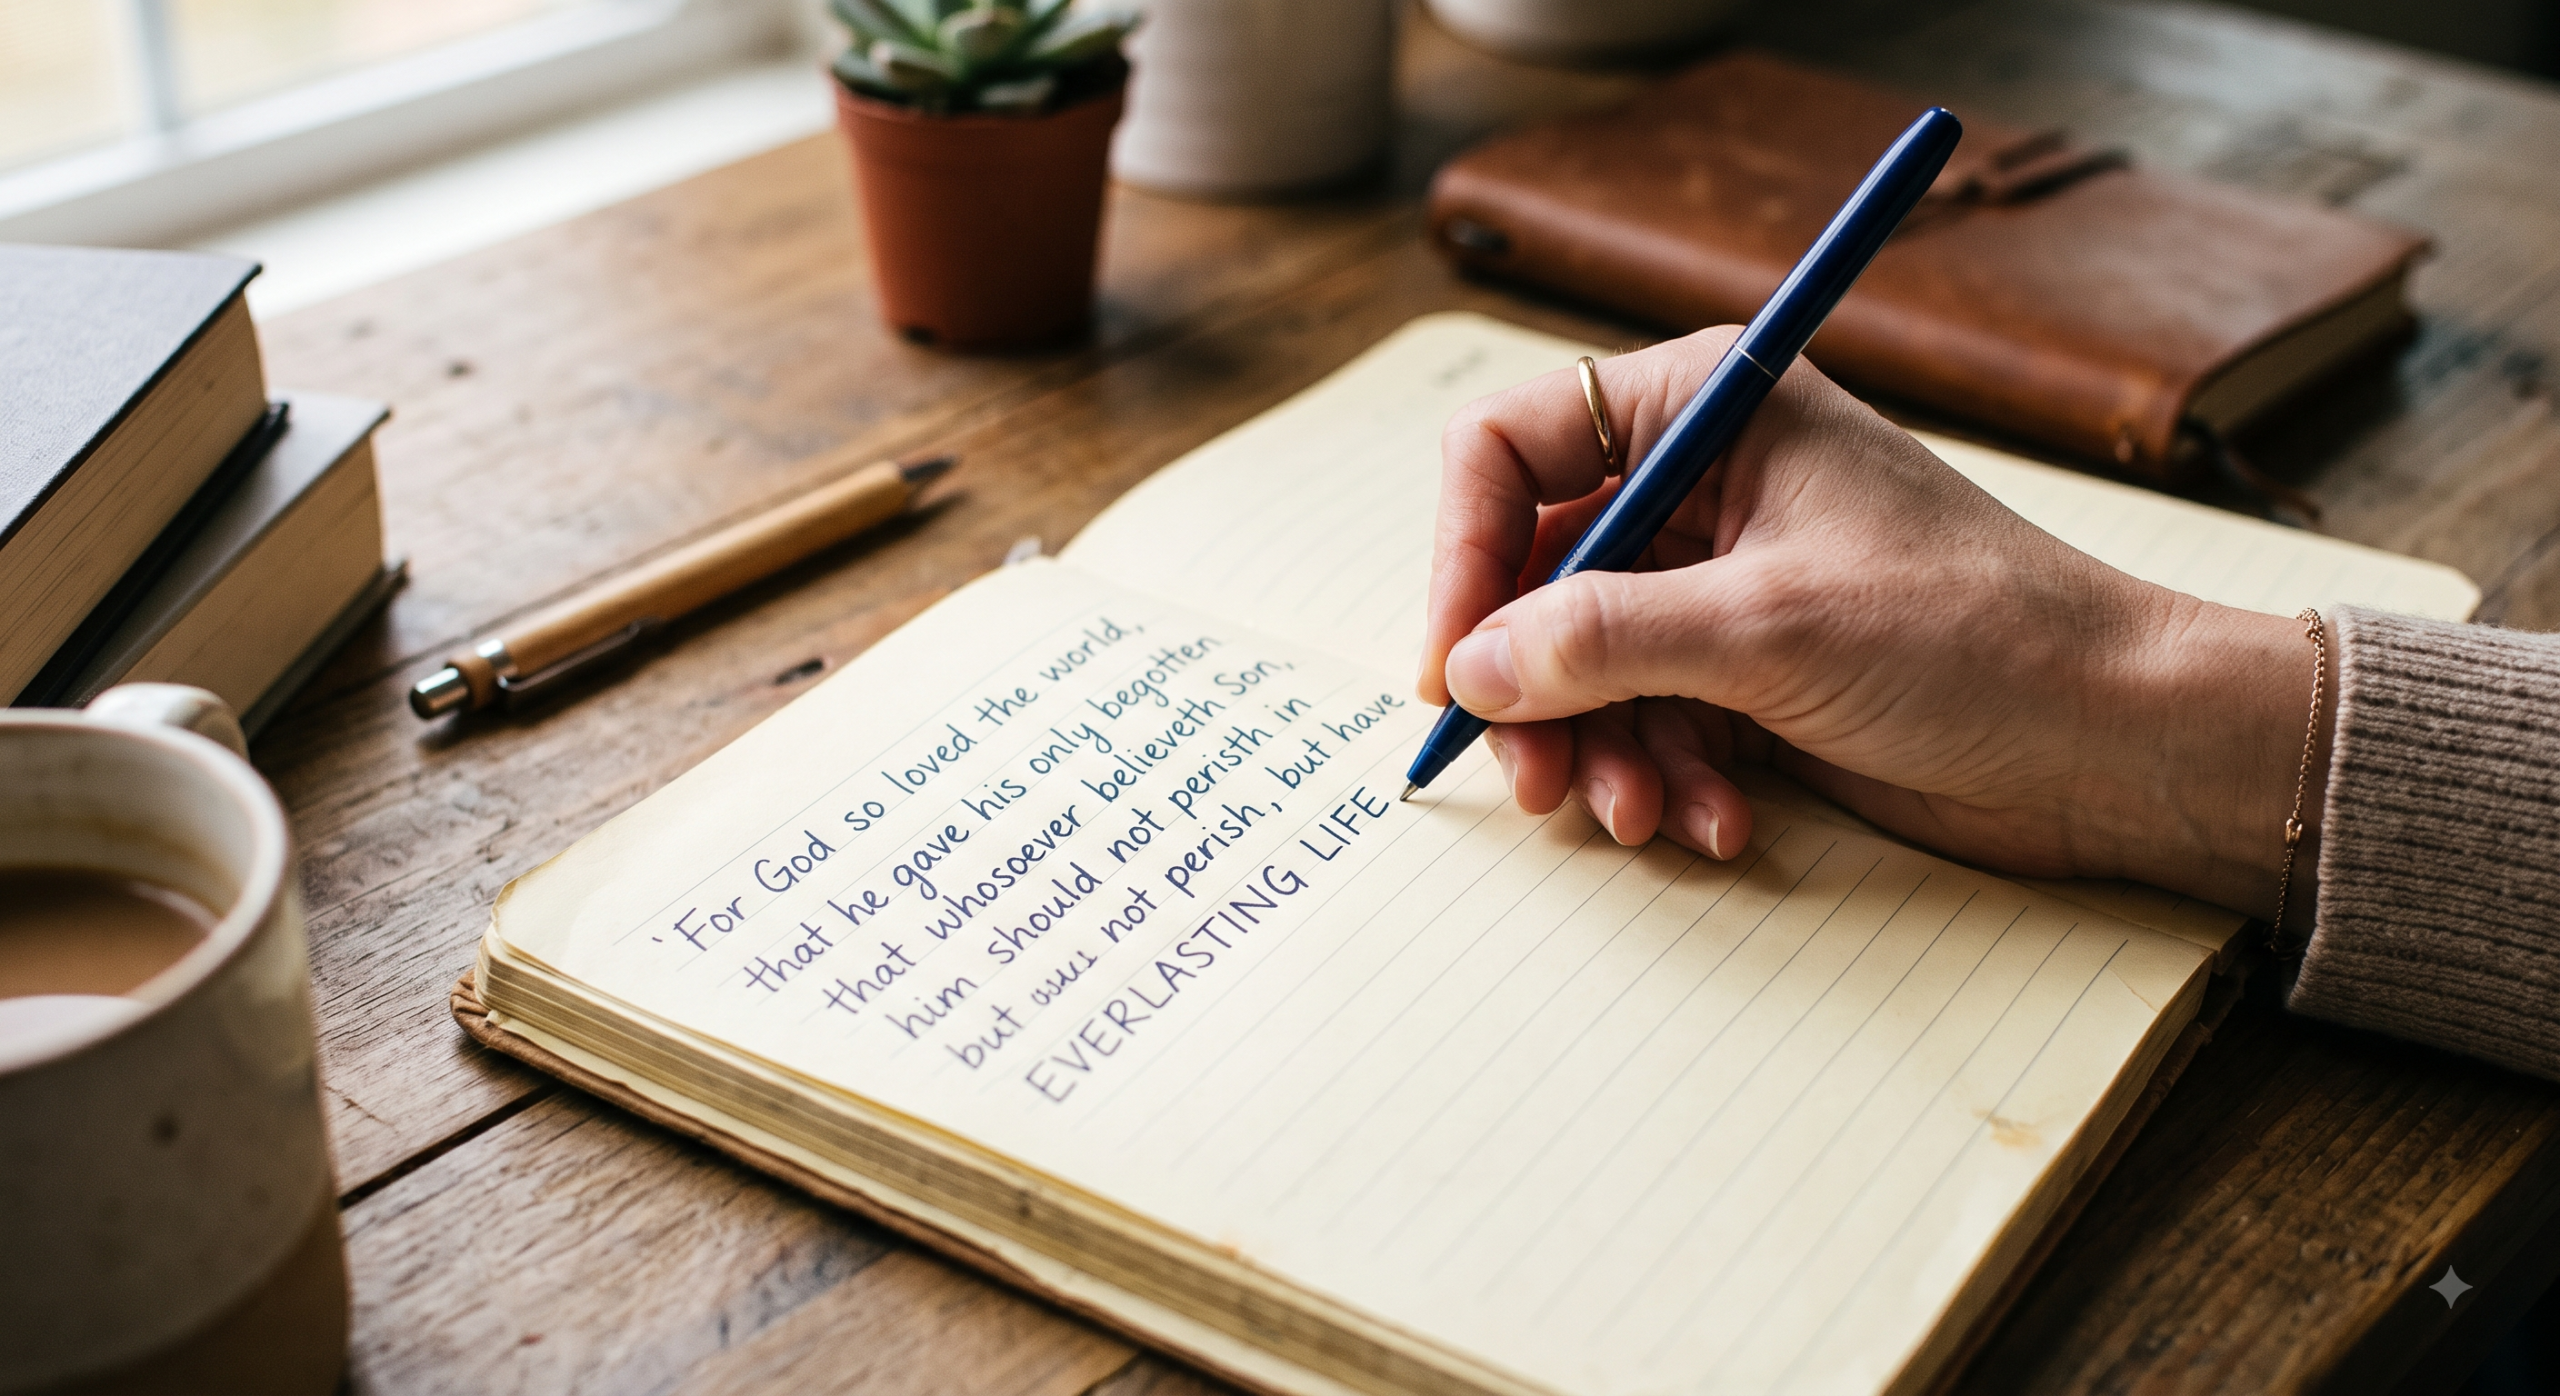 'For God so loved the world,
that he gave his only begotten
that whosoever believeth Son,
him should not peristh in
but not perish, but have
EVERLASTING LIFE